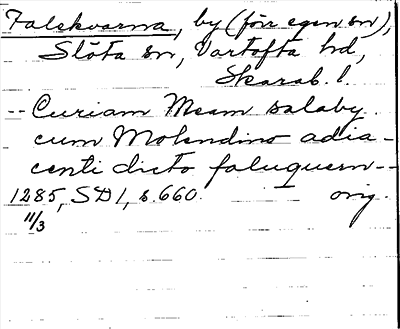 Falekvarna, by (förr egen sn),
Slöta sn, Vartofta hd,
Skarab. l.
-- Curiam Meam salaby
cum Molendino adia-
centi dicto faluquern --
1285, SD 1, s. 660. orig.
11/3